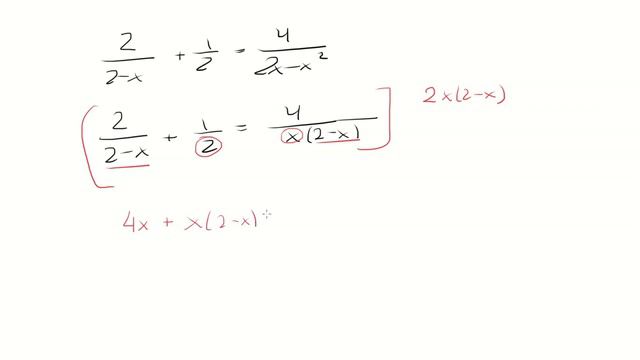 2/(2-x) + 1/2 = 4/(2x-x²)
[2/(2-x) + 1/2 = 4/(x(2-x))] 2x(2-x)
4x + x(2-x)